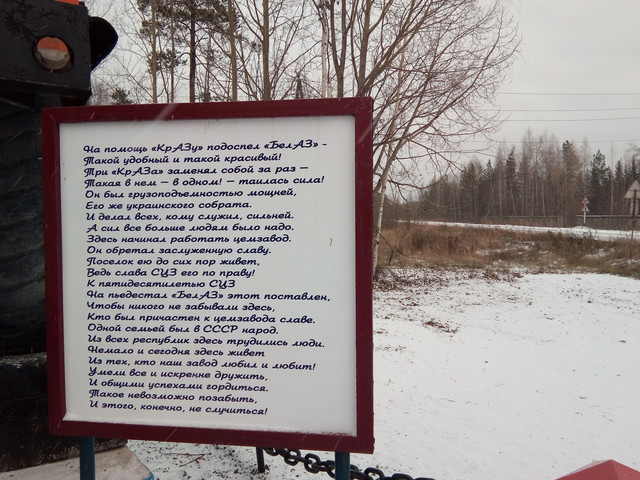 На помощь «КрАЗу» подоспел «БелАЗ» -
Такой удобный и такой красивый!
Три «КрАЗа» заменял собой за раз —
Такая в нем — в одном! — таилась сила!
Он был грузоподъемностью мощней,
Его же украинского собрата.
И делал всех, кому служил, сильней.
А сил все больше людям было надо.
Здесь начинал работать цемзавод.
Он обретал заслуженную славу.
Поселок ею до сих пор живет,
Ведь слава СЦЗ его по праву!
К пятидесятилетью СЦЗ
На пьедестал «БелАЗ» этот поставлен,
Чтобы никого не забывали здесь,
Кто был причастен к цемзавода славе.
Одной семьей был в СССР народ.
Из всех республик здесь трудились люди.
Немало и сегодня здесь живет
Из тех, кто наш завод любил и любит!
Умели все и искренне дружить,
И общими успехами гордиться.
Такое невозможно позабыть,
И этого, конечно, не случиться!